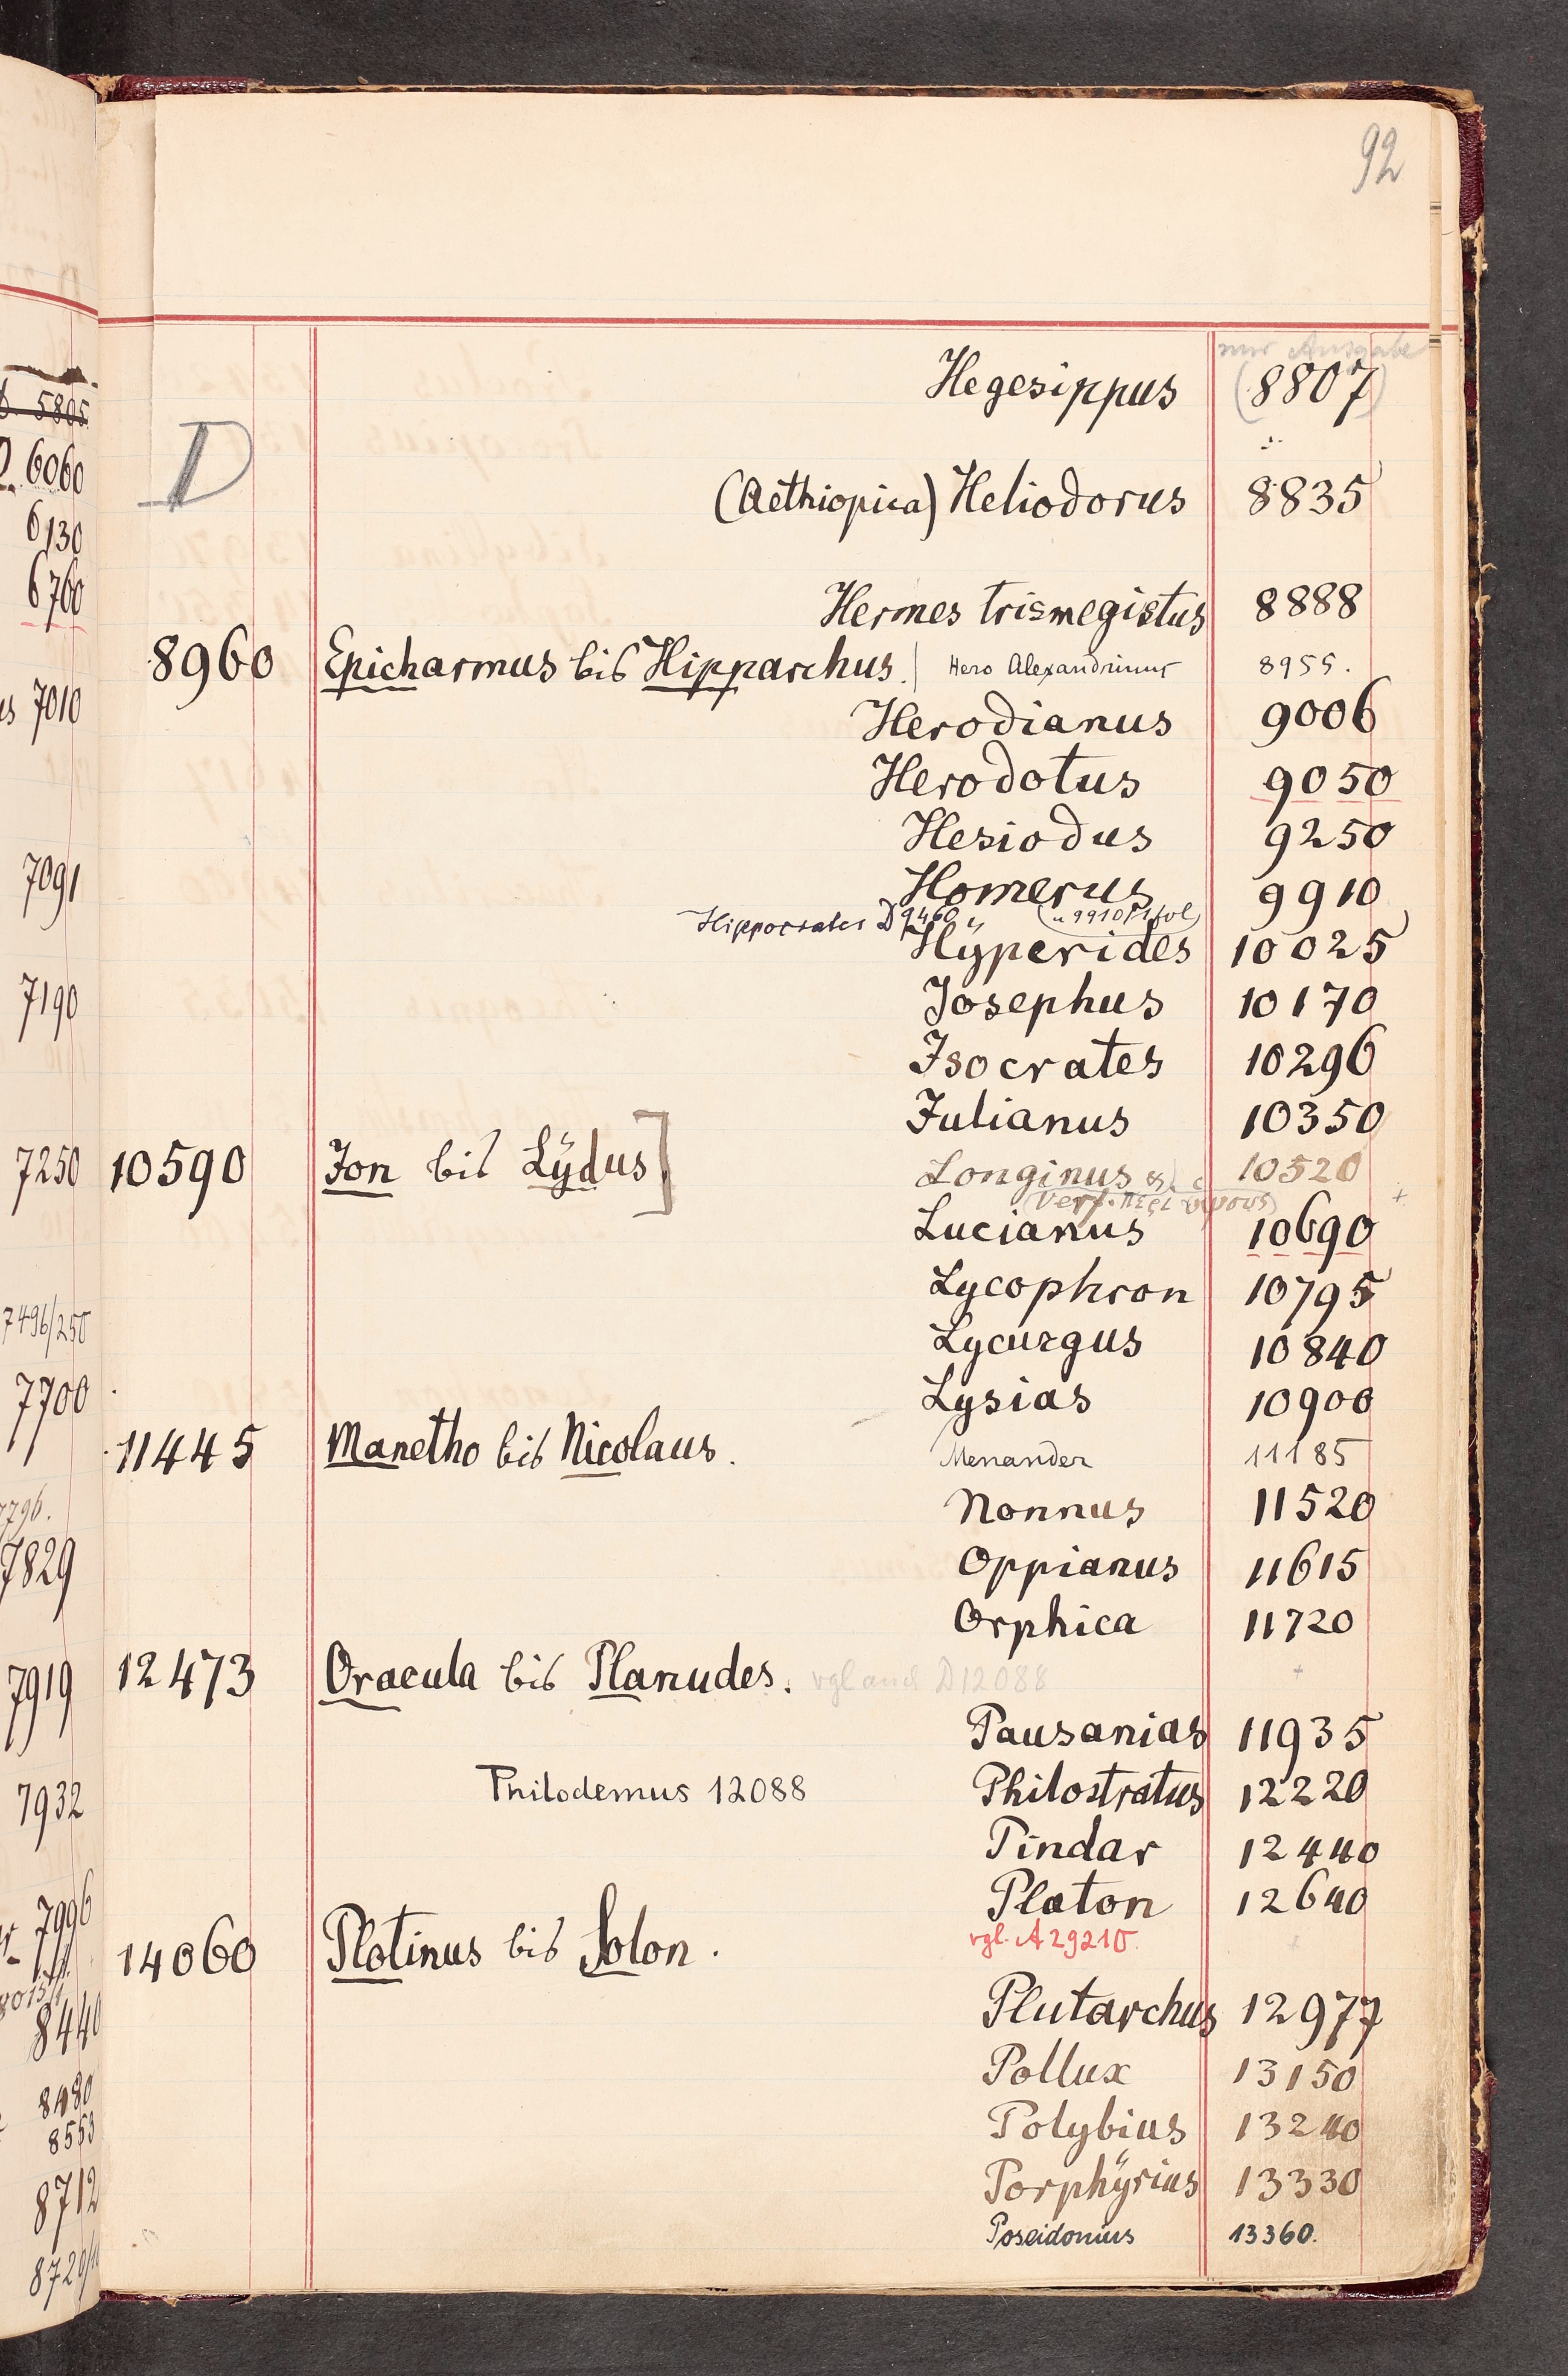 92
nur Ausgabe
Hegesippus (8807)
D
(Aethiopica) Heliodorus 8835
Hermes trismegistus 8888
8960 Epicharmus bis Hipparchus. Hero Alexandrinus 8955.
Herodianus 9006
Herodotus 9050
Hesiodus 9250
Homerus 9910
Hippocrates D 9460
Hÿperides 10025
Josephus 10170
Isocrates 10296
Julianus 10350
10590 Ion bis Lÿdus] Longinus 10520
(Verf. περι υψους)
Lucianus 10690
Lycophron 10795
Lycurgus 10840
Lysias 10900
11445 Manetho bis Nicolaus. Menander 11185
Nonnus 11520
Oppianus 11615
Orphica 11720
12473 Oracula bis Planudes. vgl auch D 12088
Pausanias 11935
Philodemus 12088 Philostratus 12220
Pindar 12440
Platon 12640
vgl. A 29210.
14060 Plotinus bis Solon.
Plutarchus 12977
Pollux 13150
Polybius 13240
Porphÿrius 13330
Poseidonius 13360.
5805
6060
6130
6760
7010
7091
7190
7250
7496/250
7700
7796.
7829
7919
7932
7996
8440
8480
8553
8712